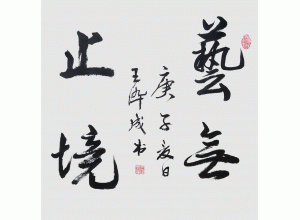 藝無
止境
庚子夏日
王曄成书